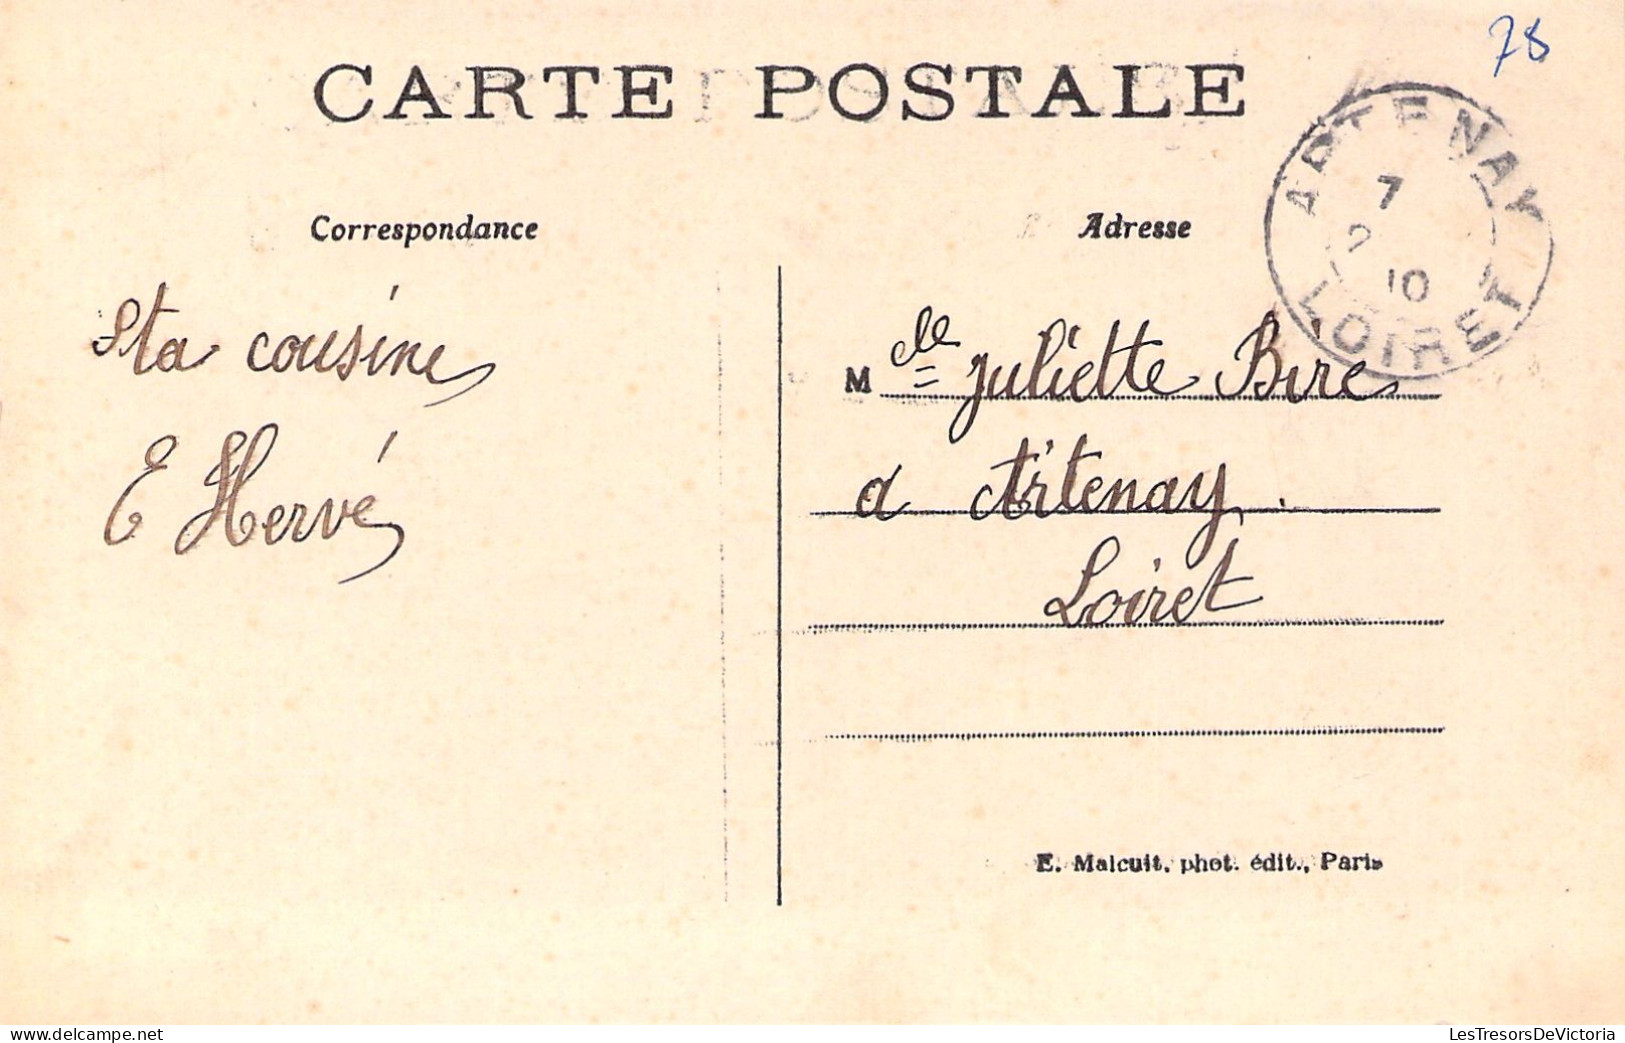 78
CARTE POSTALE
ARTENAY
7
2
10
LOIRET
Correspondance
Adresse
ta cousine
E Hervé
M elle Juliette Biré
à Artenay.
Loiret
E. Malcuit, phot. édit., Paris
delcampe.net
LesTresorsDeVictoria